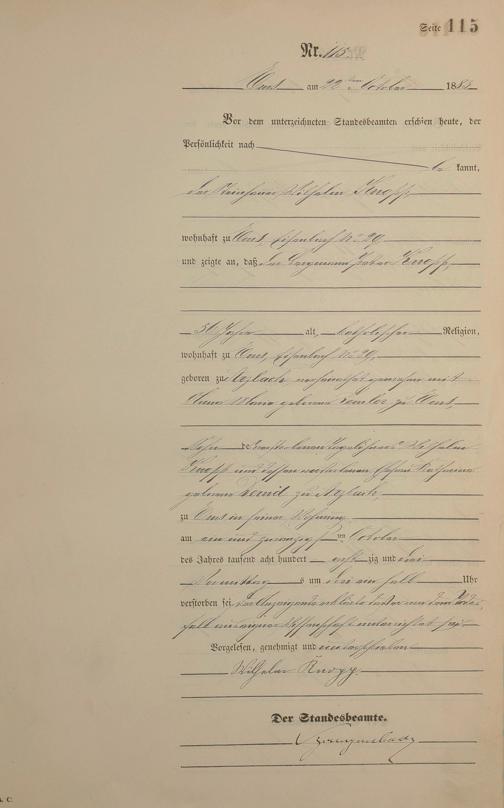 Seite 115
Nr. 115
Ems am 22ten October 1883
Vor dem unterzeichneten Standesbeamten erschien heute, der
Persönlichkeit nach
be kannt,
der Wilhelm Knopp
wohnhaft zu Ems, No 20
und zeigte an, daß der Bergmann Peter Knopp
50 Jahre alt, katholischer Religion,
wohnhaft zu Ems, No 20,
geboren zu Arzbach mit
Anna Maria geborene zu Ems,
Sohn des verstorbenen Tagelöhners Wilhelm
Knopp und dessen verstorbenen Ehefrau Katharina
geborene zu Arzbach
zu Ems in seiner Wohnung
am ein und zwanzigsten October
des Jahres tausend acht hundert acht zig und drei
Vormittags um drei ein halb Uhr
verstorben sei, der Anzeigende erklärte daß er von dem Todes-
fall aus eigener Wissenschaft unterrichtet sei
Vorgelesen, genehmigt und unterschrieben
Wilhelm Knopp
Der Standesbeamte.
A. C.